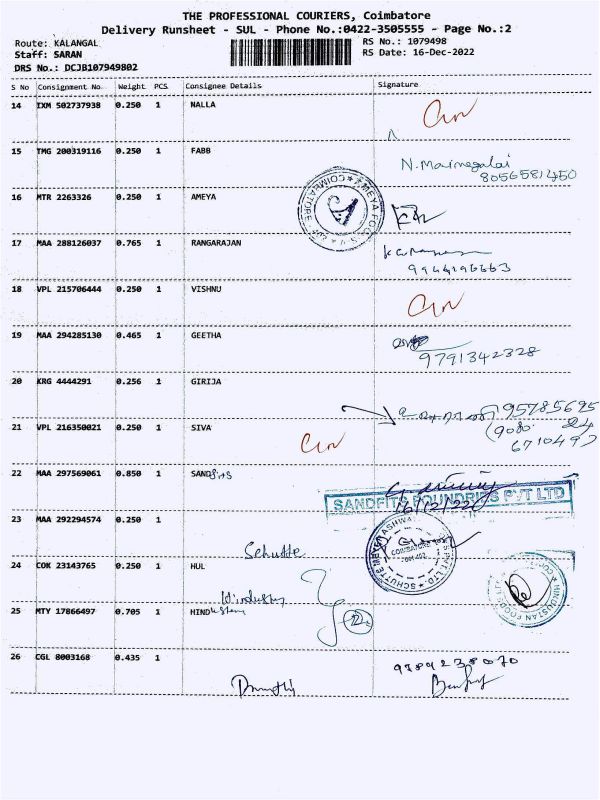 THE PROFESSIONAL COURIERS, Coimbatore
Delivery Runsheet - SUL - Phone No.:0422-3505555 - Page No.:2
Route: KALANGAL
RS No.: 1079498
Staff: SARAN
RS Date: 16-Dec-2022
DRS No.: DCJB107949802
S No Consignment No Weight PCS Consignee Details Signature
14 IXM 502737938 0.250 1 NALLA
15 TMG 200319116 0.250 1 FABB
8056581450
16 MTR 2263326 0.250 1 AMEYA
17 MAA 288126037 0.765 1 RANGARAJAN
9944196663
18 VPL 215706444 0.250 1 VISHNU
19 MAA 294285130 0.465 1 GEETHA
9791342328
20 KRG 4444291 0.256 1 GIRIJA
21 VPL 216350021 0.250 1 SIVA
22 MAA 297569061 0.850 1 SANDfits
SANDFITS FOUNDRIES PVT LTD
16/12/22
23 MAA 292294574 0.250 1
Schutte
24 COK 23143765 0.250 1 HUL
Hindustan
25 MTY 17866497 0.705 1 HINDustan
26 CGL 8003168 0.435 1
9384238070